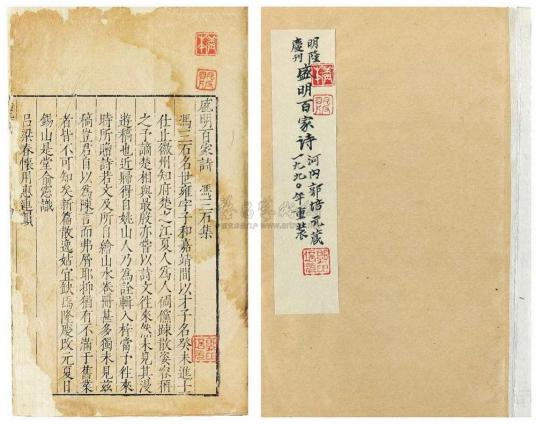 盛明百家詩　馮三石集
馮三石名世雍字子和嘉靖間以才子名癸未進士
仕止徽州知府楚之江夏人為人倜儻踈散姿容
之予謫楚相與最殷亦嘗以詩文往來然未見其漫
遊稿也近歸得自姚山人乃為詮輯入梓當予往來
時所贈詩若文及所自繪山水卷冊甚多獨未見茲
稿豈君自以為陳言而弗屑耶抑猶有不滿于舊業
者皆不可知矣新篇散逸姑宜歟隆慶改元夏日
錫山是堂俞憲識
呂梁春懷用惠連韻
明隆
慶刊
盛明百家诗
河内郭培元藏
一九九〇年重装